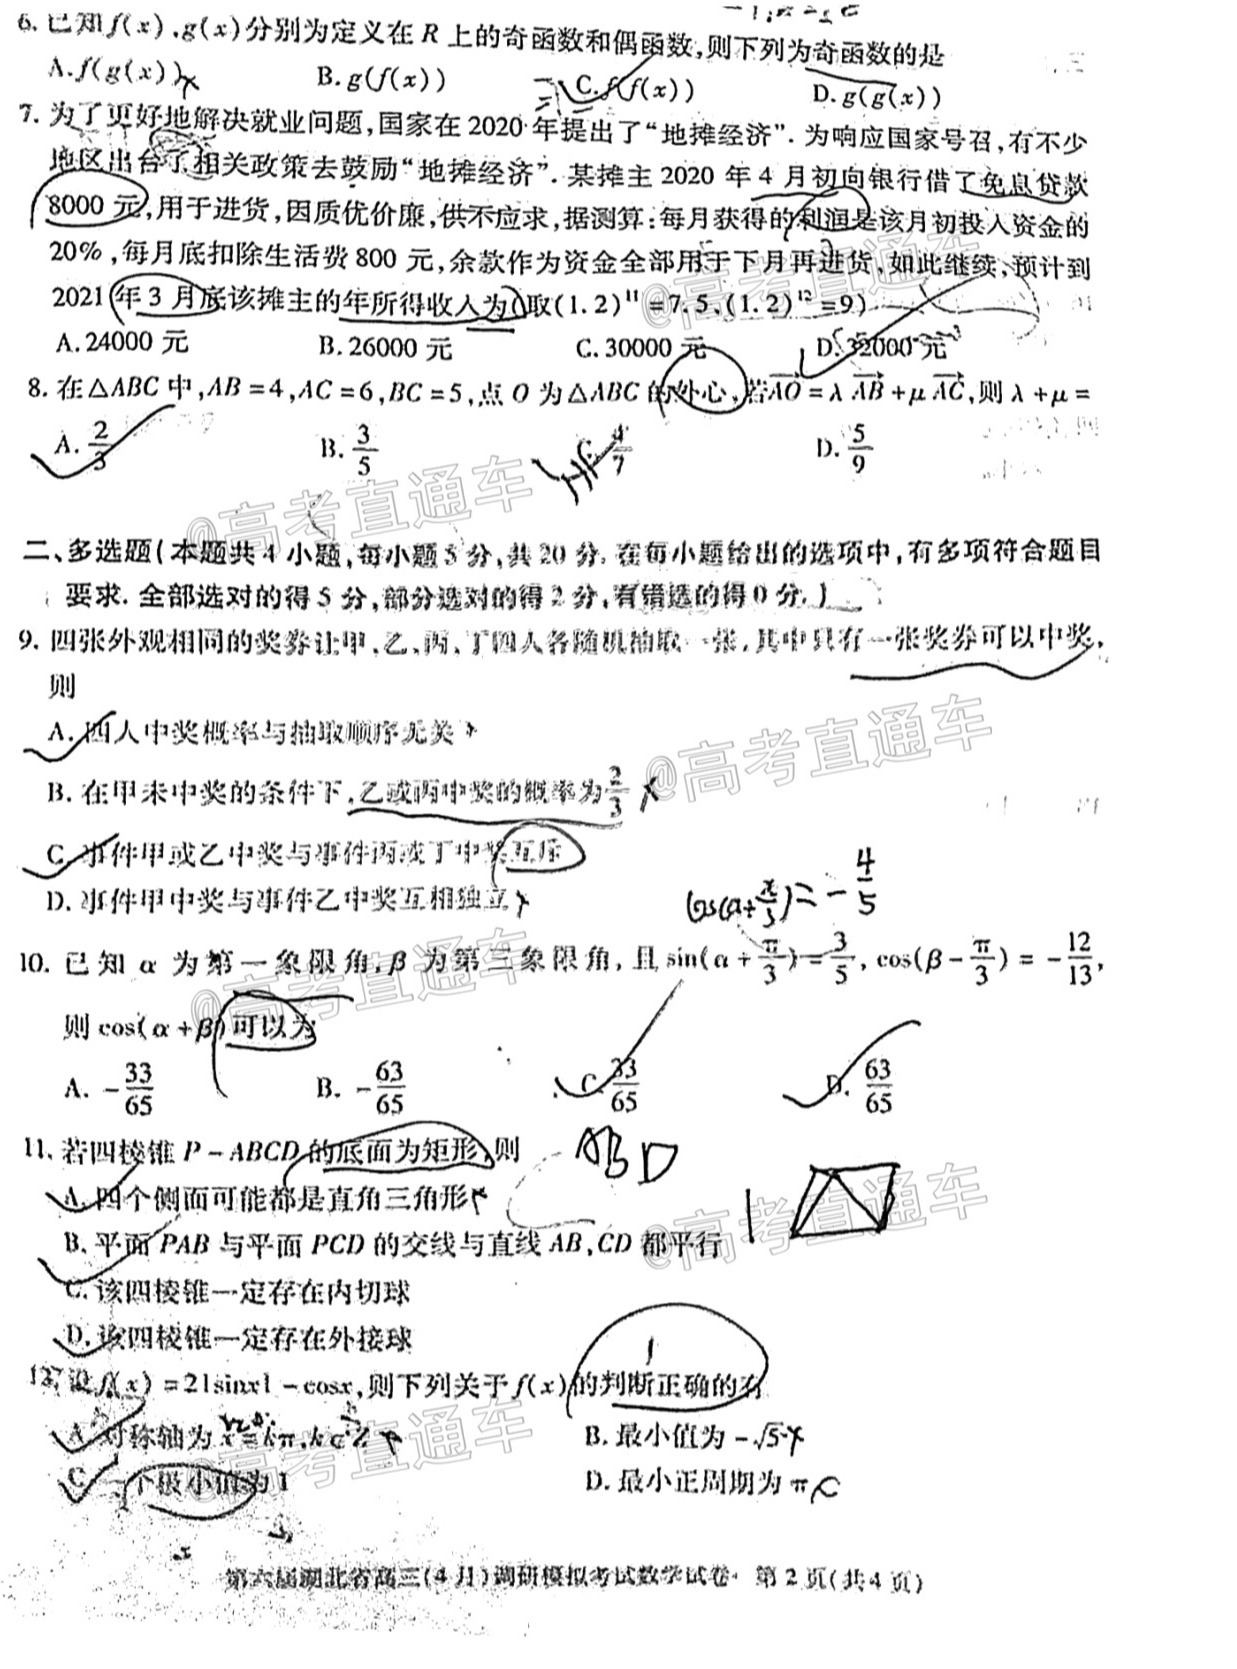 6. 已知f(x),g(x)分别为定义在R上的奇函数和偶函数,则下列为奇函数的是
A.f(g(x)) B.g(f(x)) C.f(f(x)) D.g(g(x))
7. 为了更好地解决就业问题,国家在2020年提出了“地摊经济”.为响应国家号召,有不少
地区出台了相关政策去鼓励“地摊经济”.某摊主2020年4月初向银行借了免息贷款
8000元,用于进货,因质优价廉,供不应求,据测算:每月获得的利润是该月初投入资金的
20%,每月底扣除生活费800元,余款作为资金全部用于下月再进货,如此继续,预计到
2021年3月底该摊主的年所得收入为(取(1.2)¹¹=7.5,(1.2)¹²=9)
A.24000元 B.26000元 C.30000元 D.32000元
8. 在△ABC中,AB=4,AC=6,BC=5,点O为△ABC的外心,若AO=λAB+μAC,则λ+μ=
A.2/3 B.3/5 C.4/7 D.5/9
@高考直通车
二、多选题(本题共4小题,每小题5分,共20分.在每小题给出的选项中,有多项符合题目
要求.全部选对的得5分,部分选对的得2分,有错选的得0分.)
9. 四张外观相同的奖券让甲、乙、丙、丁四人各随机抽取一张,其中只有一张奖券可以中奖,
则
A.四人中奖概率与抽取顺序无关
B.在甲未中奖的条件下,乙或丙中奖的概率为2/3
C.事件甲或乙中奖与事件丙或丁中奖互斥
D.事件甲中奖与事件乙中奖互相独立
cos(α+π/3)=-4/5
10. 已知α为第一象限角,β为第三象限角,且sin(α+π/3)=3/5,cos(β-π/3)=-12/13,
则cos(α+β)可以为
A. -33/65 B. -63/65 C. 33/65 D. 63/65
11. 若四棱锥P-ABCD的底面为矩形,则
ABD
A.四个侧面可能都是直角三角形
B.平面PAB与平面PCD的交线与直线AB,CD都平行
C.该四棱锥一定存在内切球
D.该四棱锥一定存在外接球
12. 设f(x)=2|sinx|-cosx,则下列关于f(x)的判断正确的有
A.对称轴为x=kπ,k∈Z B.最小值为-√5
C.一个极小值为1 D.最小正周期为π
第六届湖北省高三(4月)调研模拟考试数学试卷 第2页(共4页)